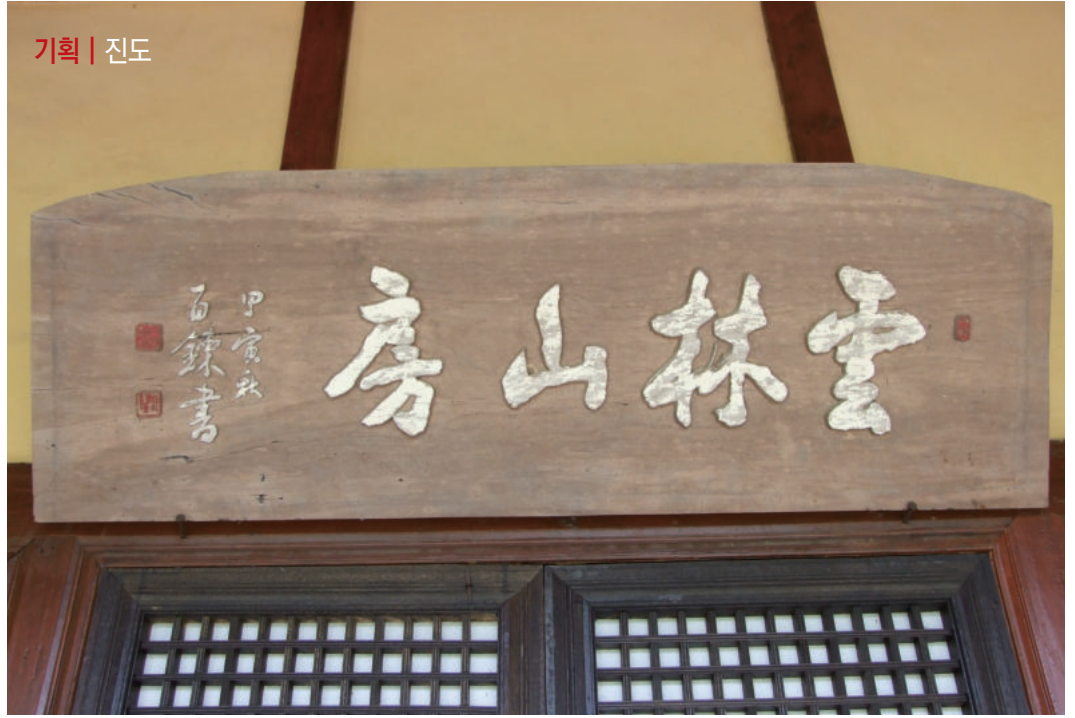 기획 | 진도
雲林山房
甲寅秋
百鍊書